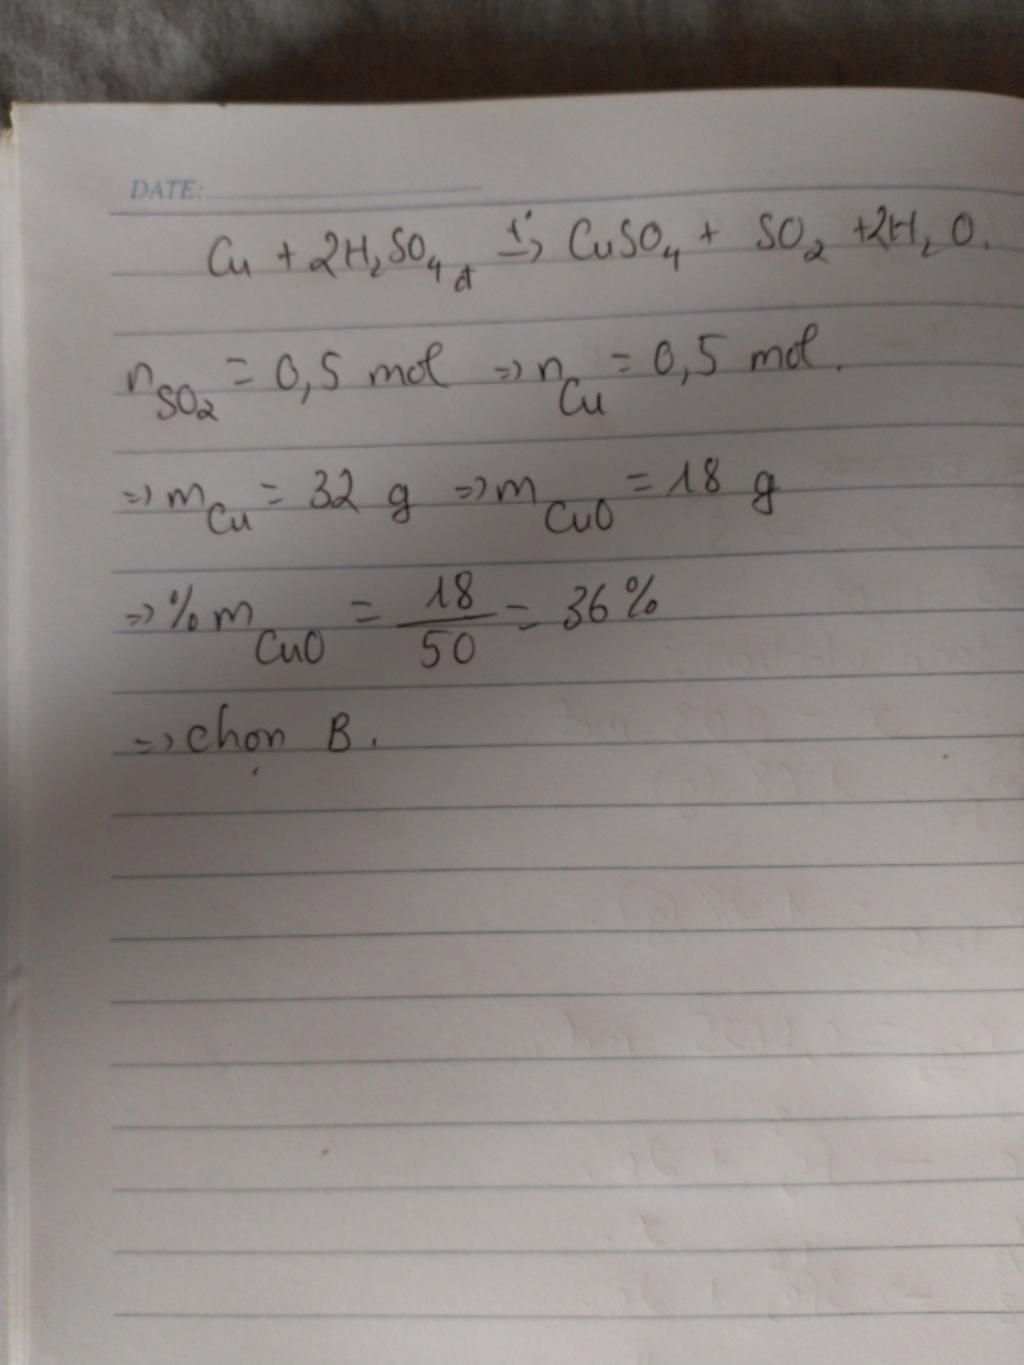 DATE:
Cu + 2H₂SO₄ đ t° → CuSO₄ + SO₂ + 2H₂O.
n SO₂ = 0,5 mol => n Cu = 0,5 mol.
=> m Cu = 32 g => m CuO = 18 g
=> % m CuO = 18/50 = 36%
=> chọn B.